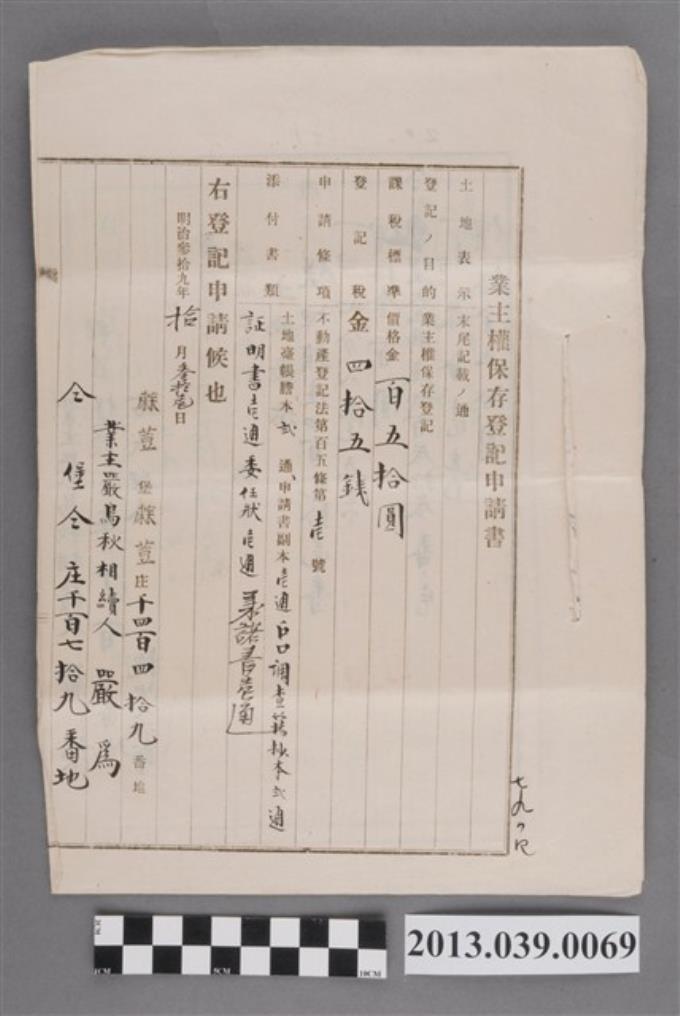 業主權保存登記申請書
土地表示 末尾記載ノ通
登記ノ目的 業主權保存登記
課稅標準 價格金 百五拾圓
登記稅 金四拾五錢
申請條項 不動產登記法第百五條第壱號
添付書類 土地臺帳謄本弐通 申請書副本壱通 戶口調查簿抄本弐通
証明書壱通 委任狀壱通 承諾書壱通
右登記申請候也
明治參拾九年拾月參拾壱日
麻荳堡麻荳庄千四百四拾九番地
業主嚴鳥秋相續人 嚴為
仝堡仝庄千百七拾九番地
2013.039.0069
2CM
1CM
5CM
10CM